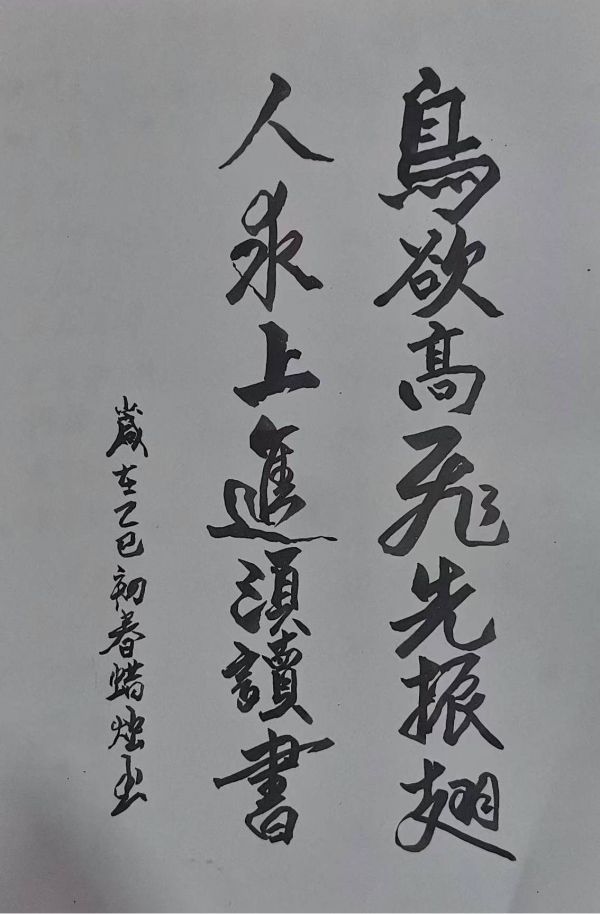 鳥欲高飛先振翅
人求上進須讀書
歲在乙巳初春蜡烛书